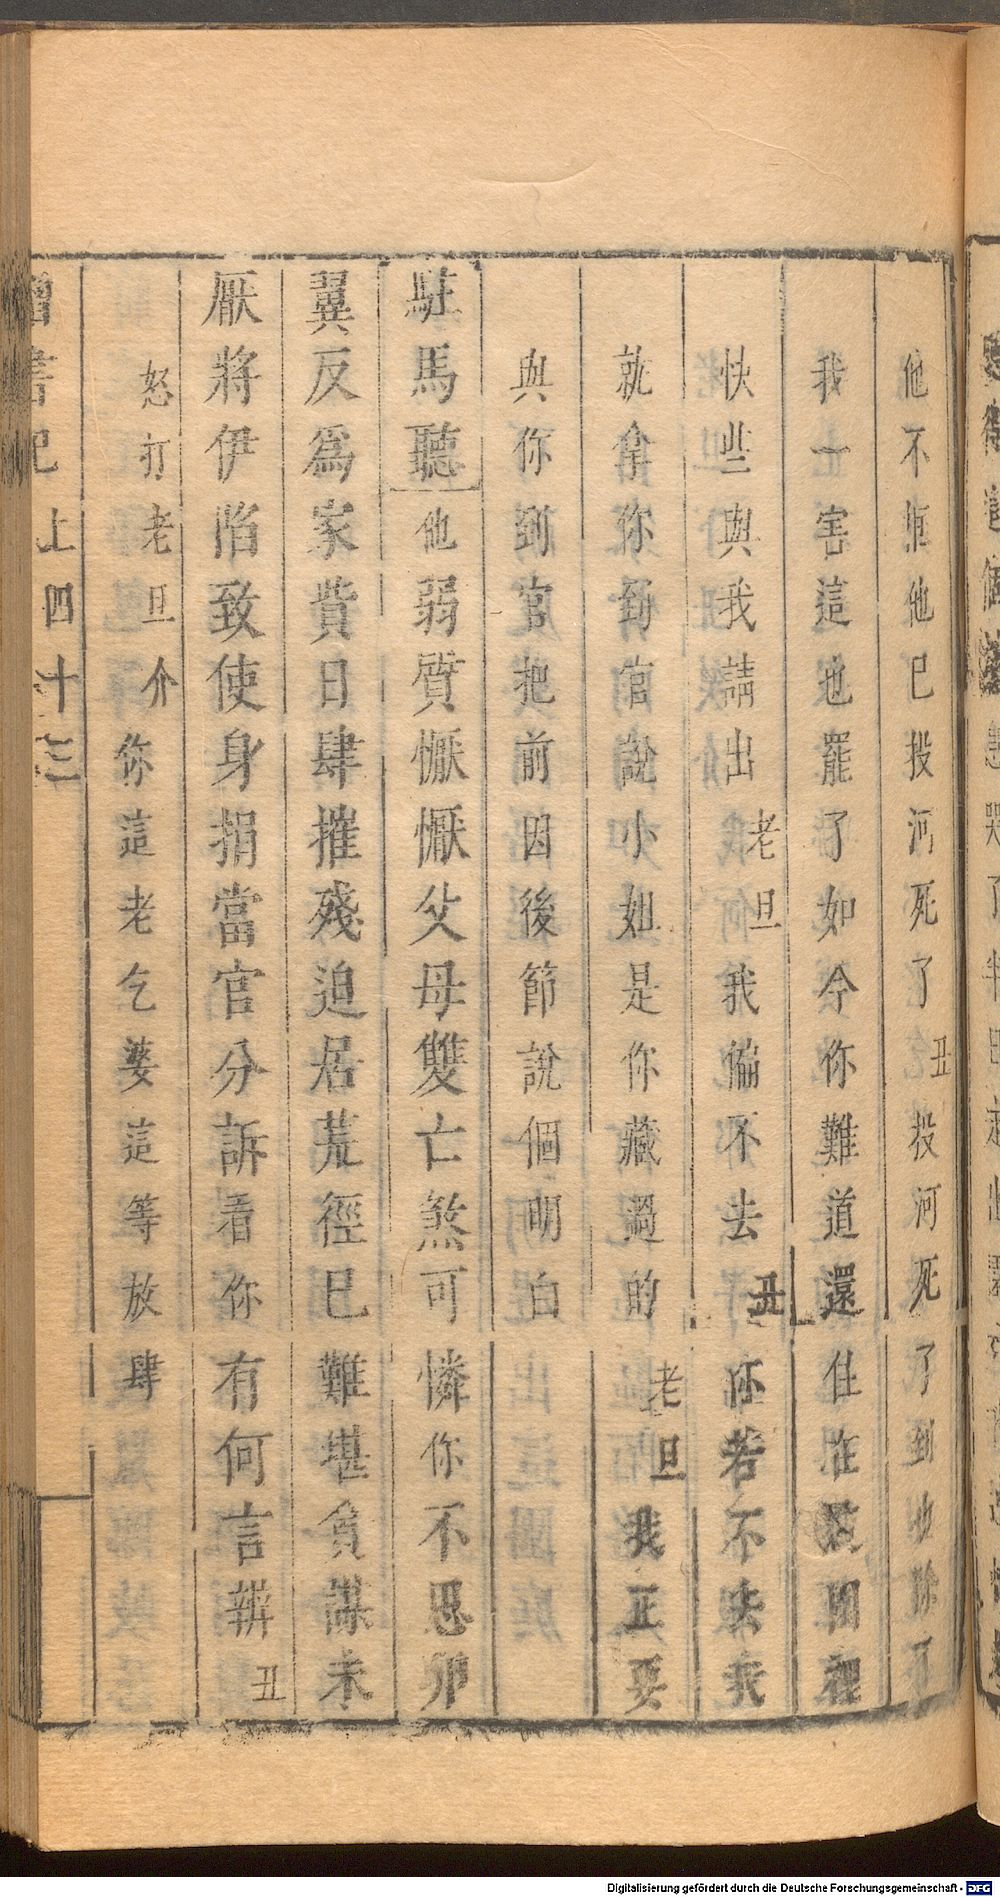 他不拒他巳投河死了丑投河死了到也除了
我一害這也罷了如今你難道還住在花園裡
快些與我請出老旦我偏不去丑你若不去我
就拿你到官說小姐是你藏過的老旦我正要
與你到官把前因後節說個明白
駐馬聽他弱質懨懨父母雙亡煞可憐你不思卵
翼反爲家貲日肆摧殘迫居荒徑巳難堪貪謀未
厭將伊陷致使身捐當官分訴看你有何言辨丑
怒打老旦介你這老乞婆這等放肆
書記 上四十三
Digitalisierung gefördert durch die Deutsche Forschungsgemeinschaft - DFG